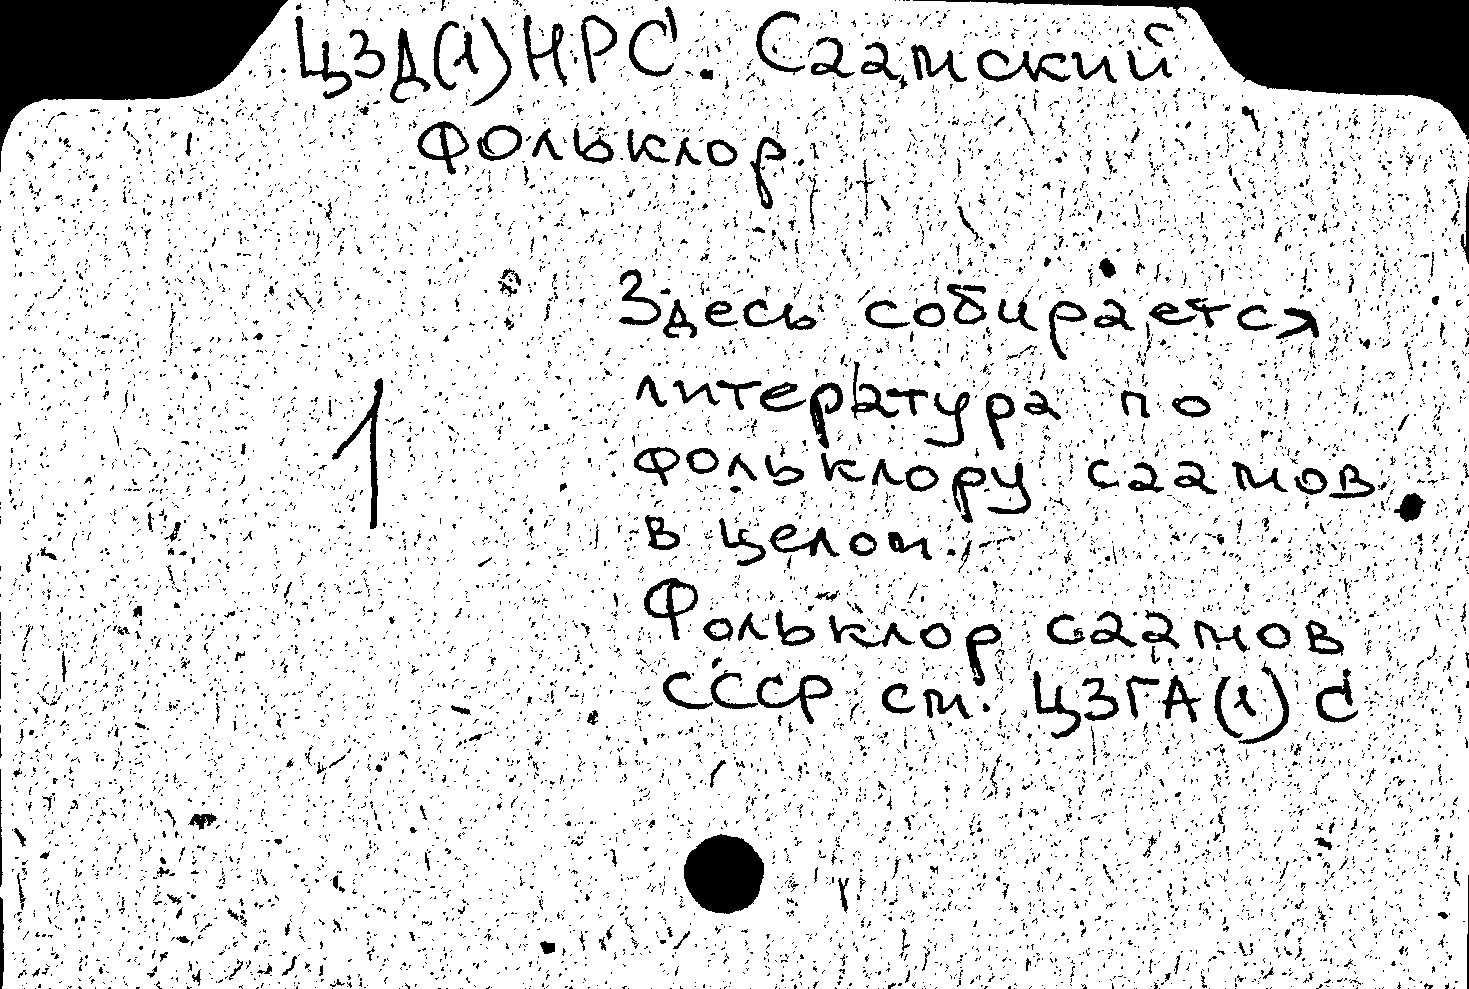 ЦЗД(1)НРС. Саамский
фольклор
Здесь собирается
литература по
1
фольклору саамов
в целом.
Фольклор саамов
СССР см. ЦЗГА(1)С